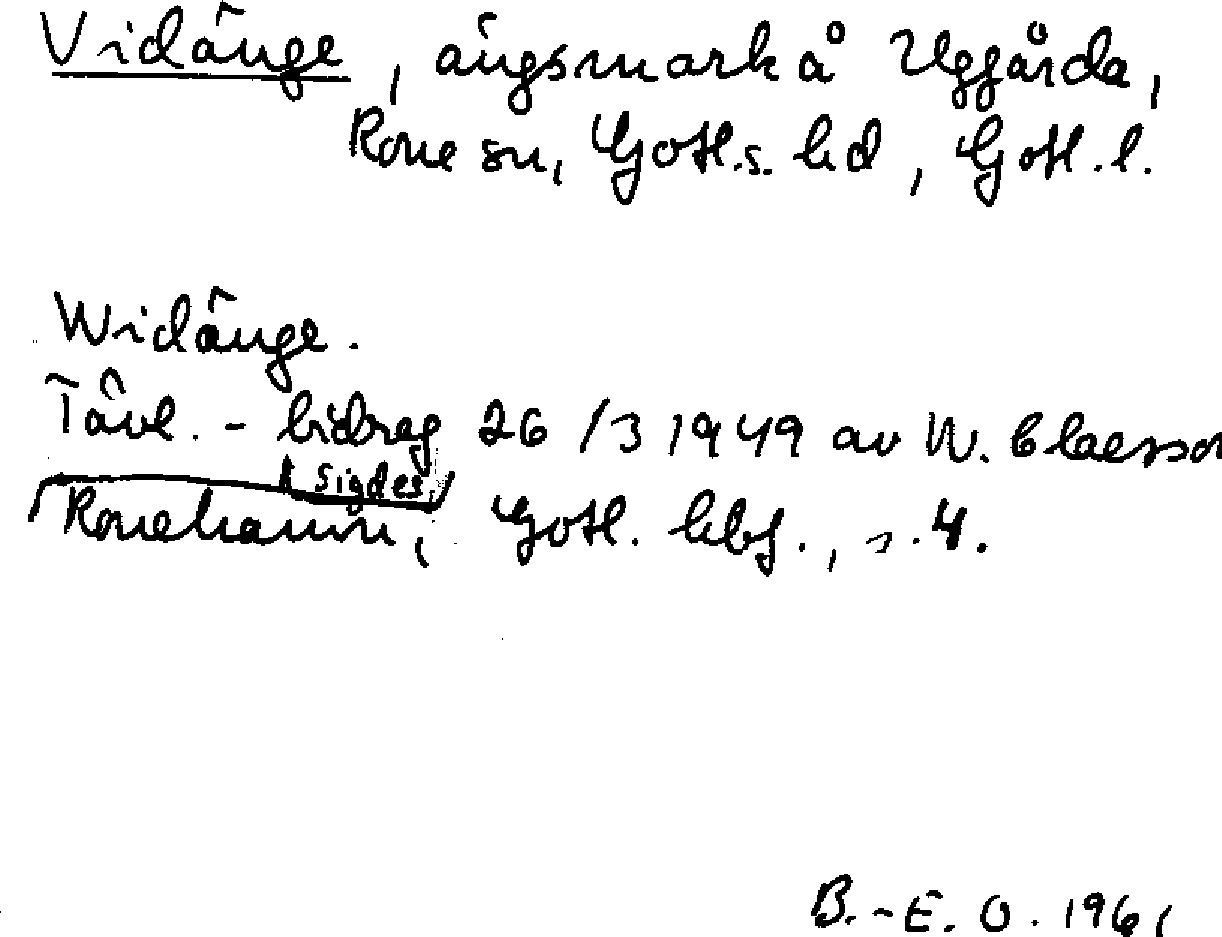 Vidänge, ängsmark å Uggårda,
Rone sn, Gotl.s. hd, Gotl. l.
Widänge.
Tävl.-bidrag 26/3 1949 av W. Claesson
Sigdes,
Ronehamn, Gotl. hbf., s. 4.
B.-E. O. 1961